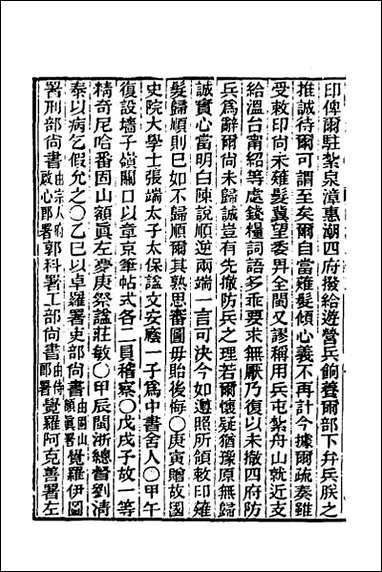 印俾爾駐紮泉漳惠潮四府撥給遊營兵餉養爾部下弁兵朕之
推誠待爾可謂至矣爾自當薙髮傾心義不再計今據爾疏奏雖
受敕印尚未薙髮冀望委畀全閩又謬稱用兵屯紮舟山就近支
給溫台甯紹等處錢糧詞語多乖要求無厭乃復以未撤四府防
兵爲辭爾尚未歸誠豈有先撤防兵之理若爾懷疑猶豫原無歸
誠實心當明白陳說順逆兩端一言可決今如遵照所領敕印薙
髮歸順則已如不歸順爾其熟思審圖毋貽後悔〇庚寅贈故國
史院大學士張端太子太保謚文安廕一子爲中書舍人〇甲午
復設墻子嶺關口以章京筆帖式各二員稽察〇戊戌子故一等
精奇尼哈番固山額眞左夢庚祭謚莊敏〇甲辰閩浙總督劉清
泰以病乞假允之〇乙巳以卓羅署吏部尚書由固山額眞署覺羅伊圖
署刑部尚書由宗人府啟心郎署郭科署工部尚書由侍郎署覺羅阿克善署左